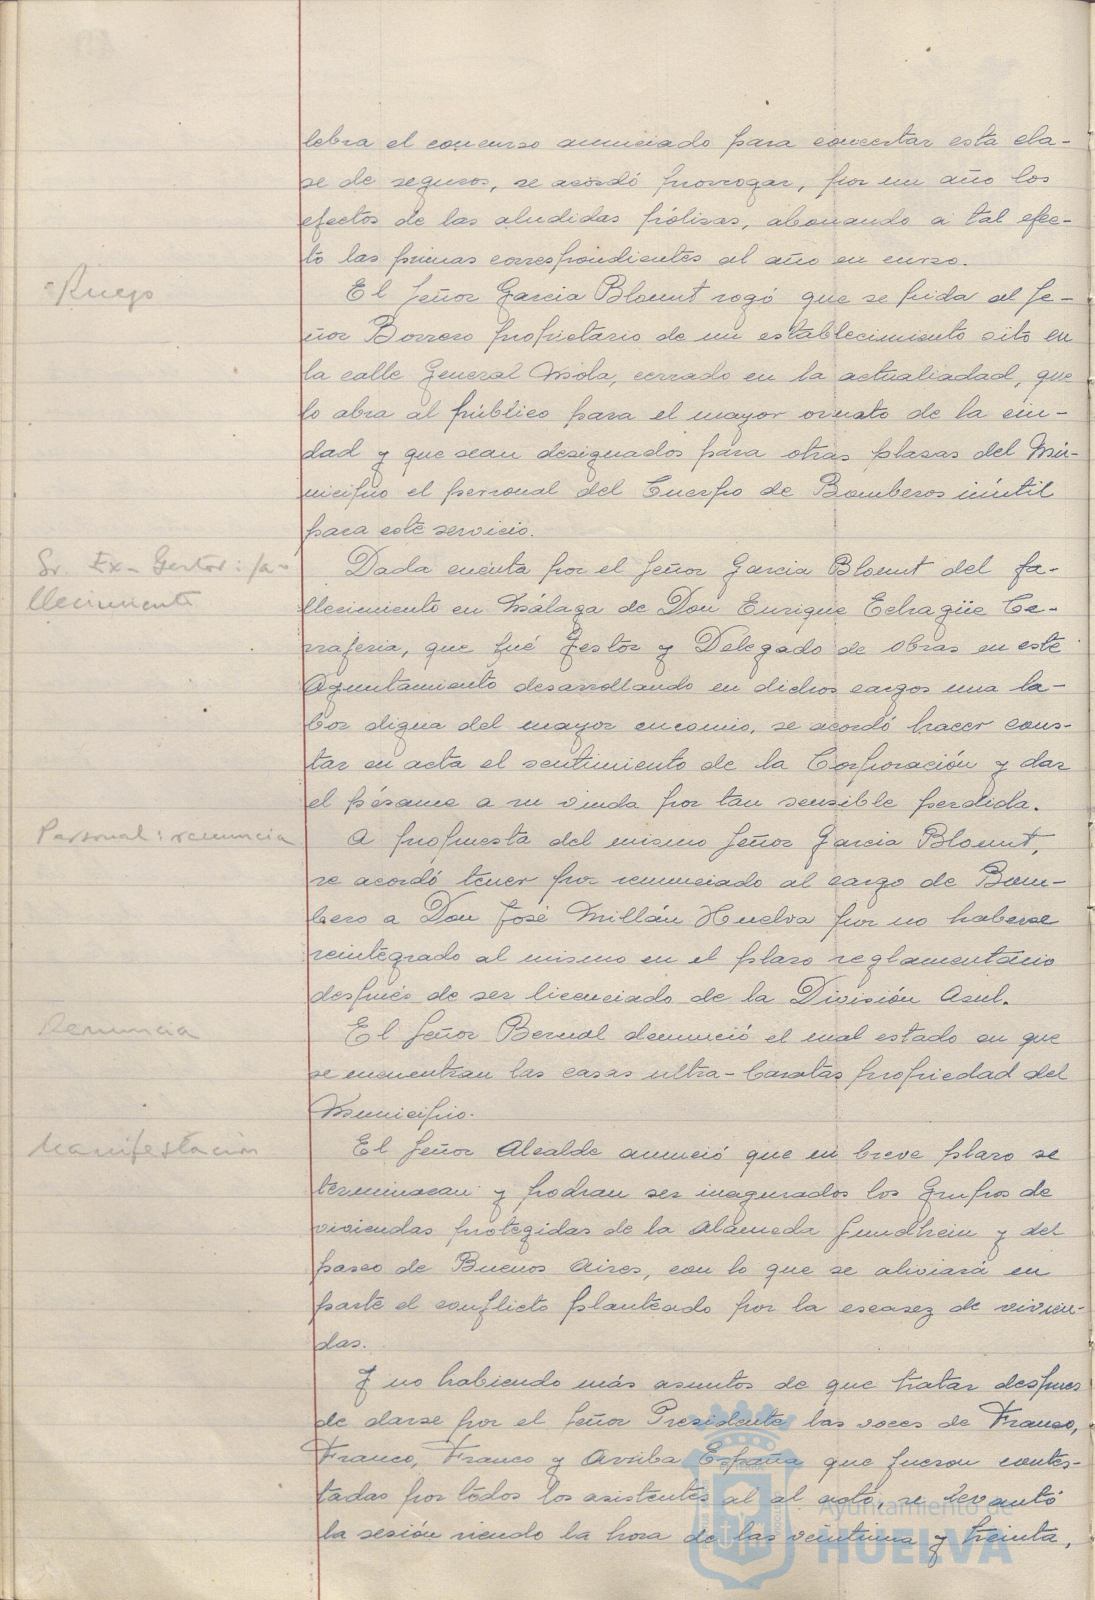 lebra el concurso anunciado para concertar esta cla-
se de seguros, se acordó prorrogar, por un año los
efectos de las aludidas pólizas, abonando a tal efec-
to las primas correspondientes al año en curso.
Ruego
El Señor Garcia Blount rogó que se pida al Se-
ñor Borrero propietario de un establecimiento sito en
la calle General Mola, cerrado en la actualiadad, que
lo abra al público para el mayor ornato de la ciu-
dad y que sean designados para otras plazas del Mu-
nicipio el personal del Cuerpo de Bomberos inútil
para este servicio.
Sr. Ex-Gestor: fa-
llecimiento
Dada cuenta por el Señor Garcia Blount del fa-
llecimiento en Málaga de Don Enrique Echagüe Ce-
rrajeria, que fué Gestor y Delegado de obras en este
Ayuntamiento desarrollando en dichos cargos una la-
bor digna del mayor encomio, se acordó hacer cons-
tar en acta el sentimiento de la Corporación y dar
el pésame a su viuda por tan sensible perdida.
Personal: renuncia
A propuesta del mismo Señor Garcia Blount,
se acordó tener por renunciado al cargo de Bom-
bero a Don José Millán Huelva por no haberse
reintegrado al mismo en el plazo reglamentario
después de ser licenciado de la División Azul.
Denuncia
El Señor Bernal denunció el mal estado en que
se encuentran las casas ultra-baratas propiedad del
Municipio.
Manifestación
El Señor Alcalde anunció que en breve plazo se
terminaran y podran ser inagurados los Grupos de
viviendas protegidas de la Alameda Sundhein y del
paseo de Buenos Aires, con lo que se aliviará en
parte el conflicto planteado por la escasez de vivien-
das.
Y no habiendo más asuntos de que tratar despues
de darse por el Señor Presidente las voces de Franco,
Franco, Franco y Arriba España que fueron contes-
tadas por todos los asistentes al al acto, se levantó
la sesión siendo la hora de las veintiuna y treinta,
Ayuntamiento de
HUELVA